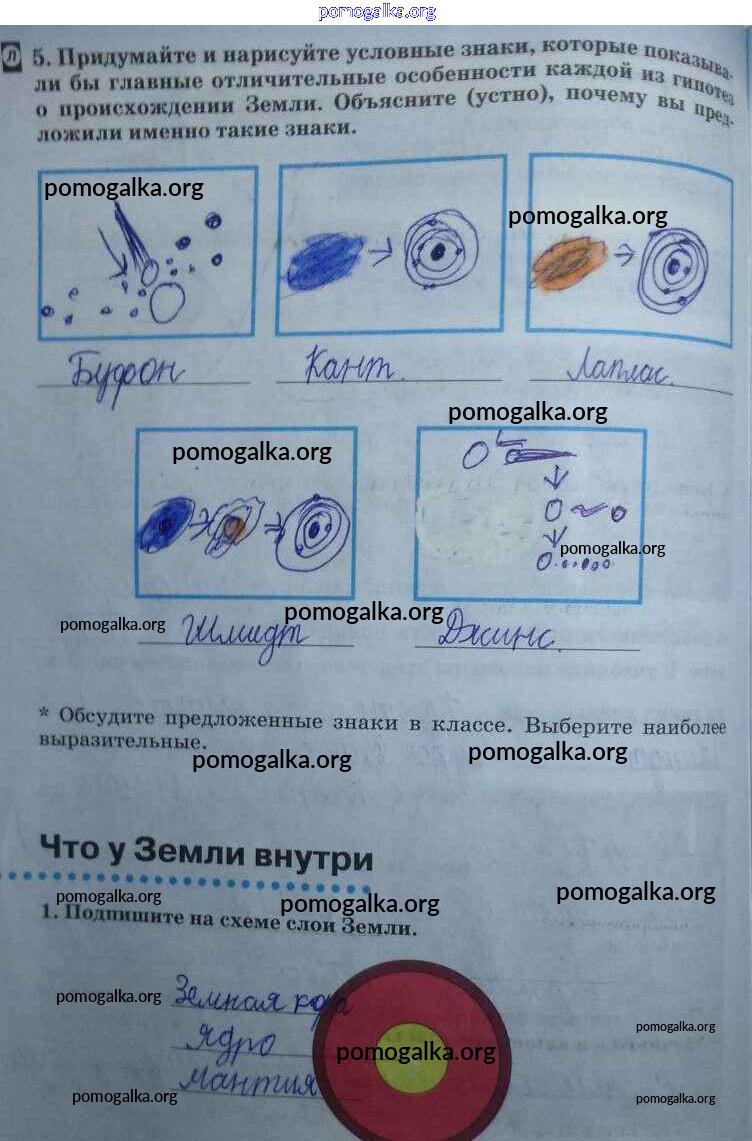 pomogalka.org
л 5. Придумайте и нарисуйте условные знаки, которые показыва-
ли бы главные отличительные особенности каждой из гипотез
о происхождении Земли. Объясните (устно), почему вы пред-
ложили именно такие знаки.
pomogalka.org
pomogalka.org
Буфон Кант. Лаплас.
pomogalka.org
pomogalka.org
pomogalka.org
pomogalka.org
pomogalka.org
Шмидт Джинс.
* Обсудите предложенные знаки в классе. Выберите наиболее
выразительные.
pomogalka.org pomogalka.org
Что у Земли внутри
pomogalka.org pomogalka.org pomogalka.org
1. Подпишите на схеме слои Земли.
Земная кора
pomogalka.org
pomogalka.org
Ядро
pomogalka.org
Мантия
pomogalka.org pomogalka.org